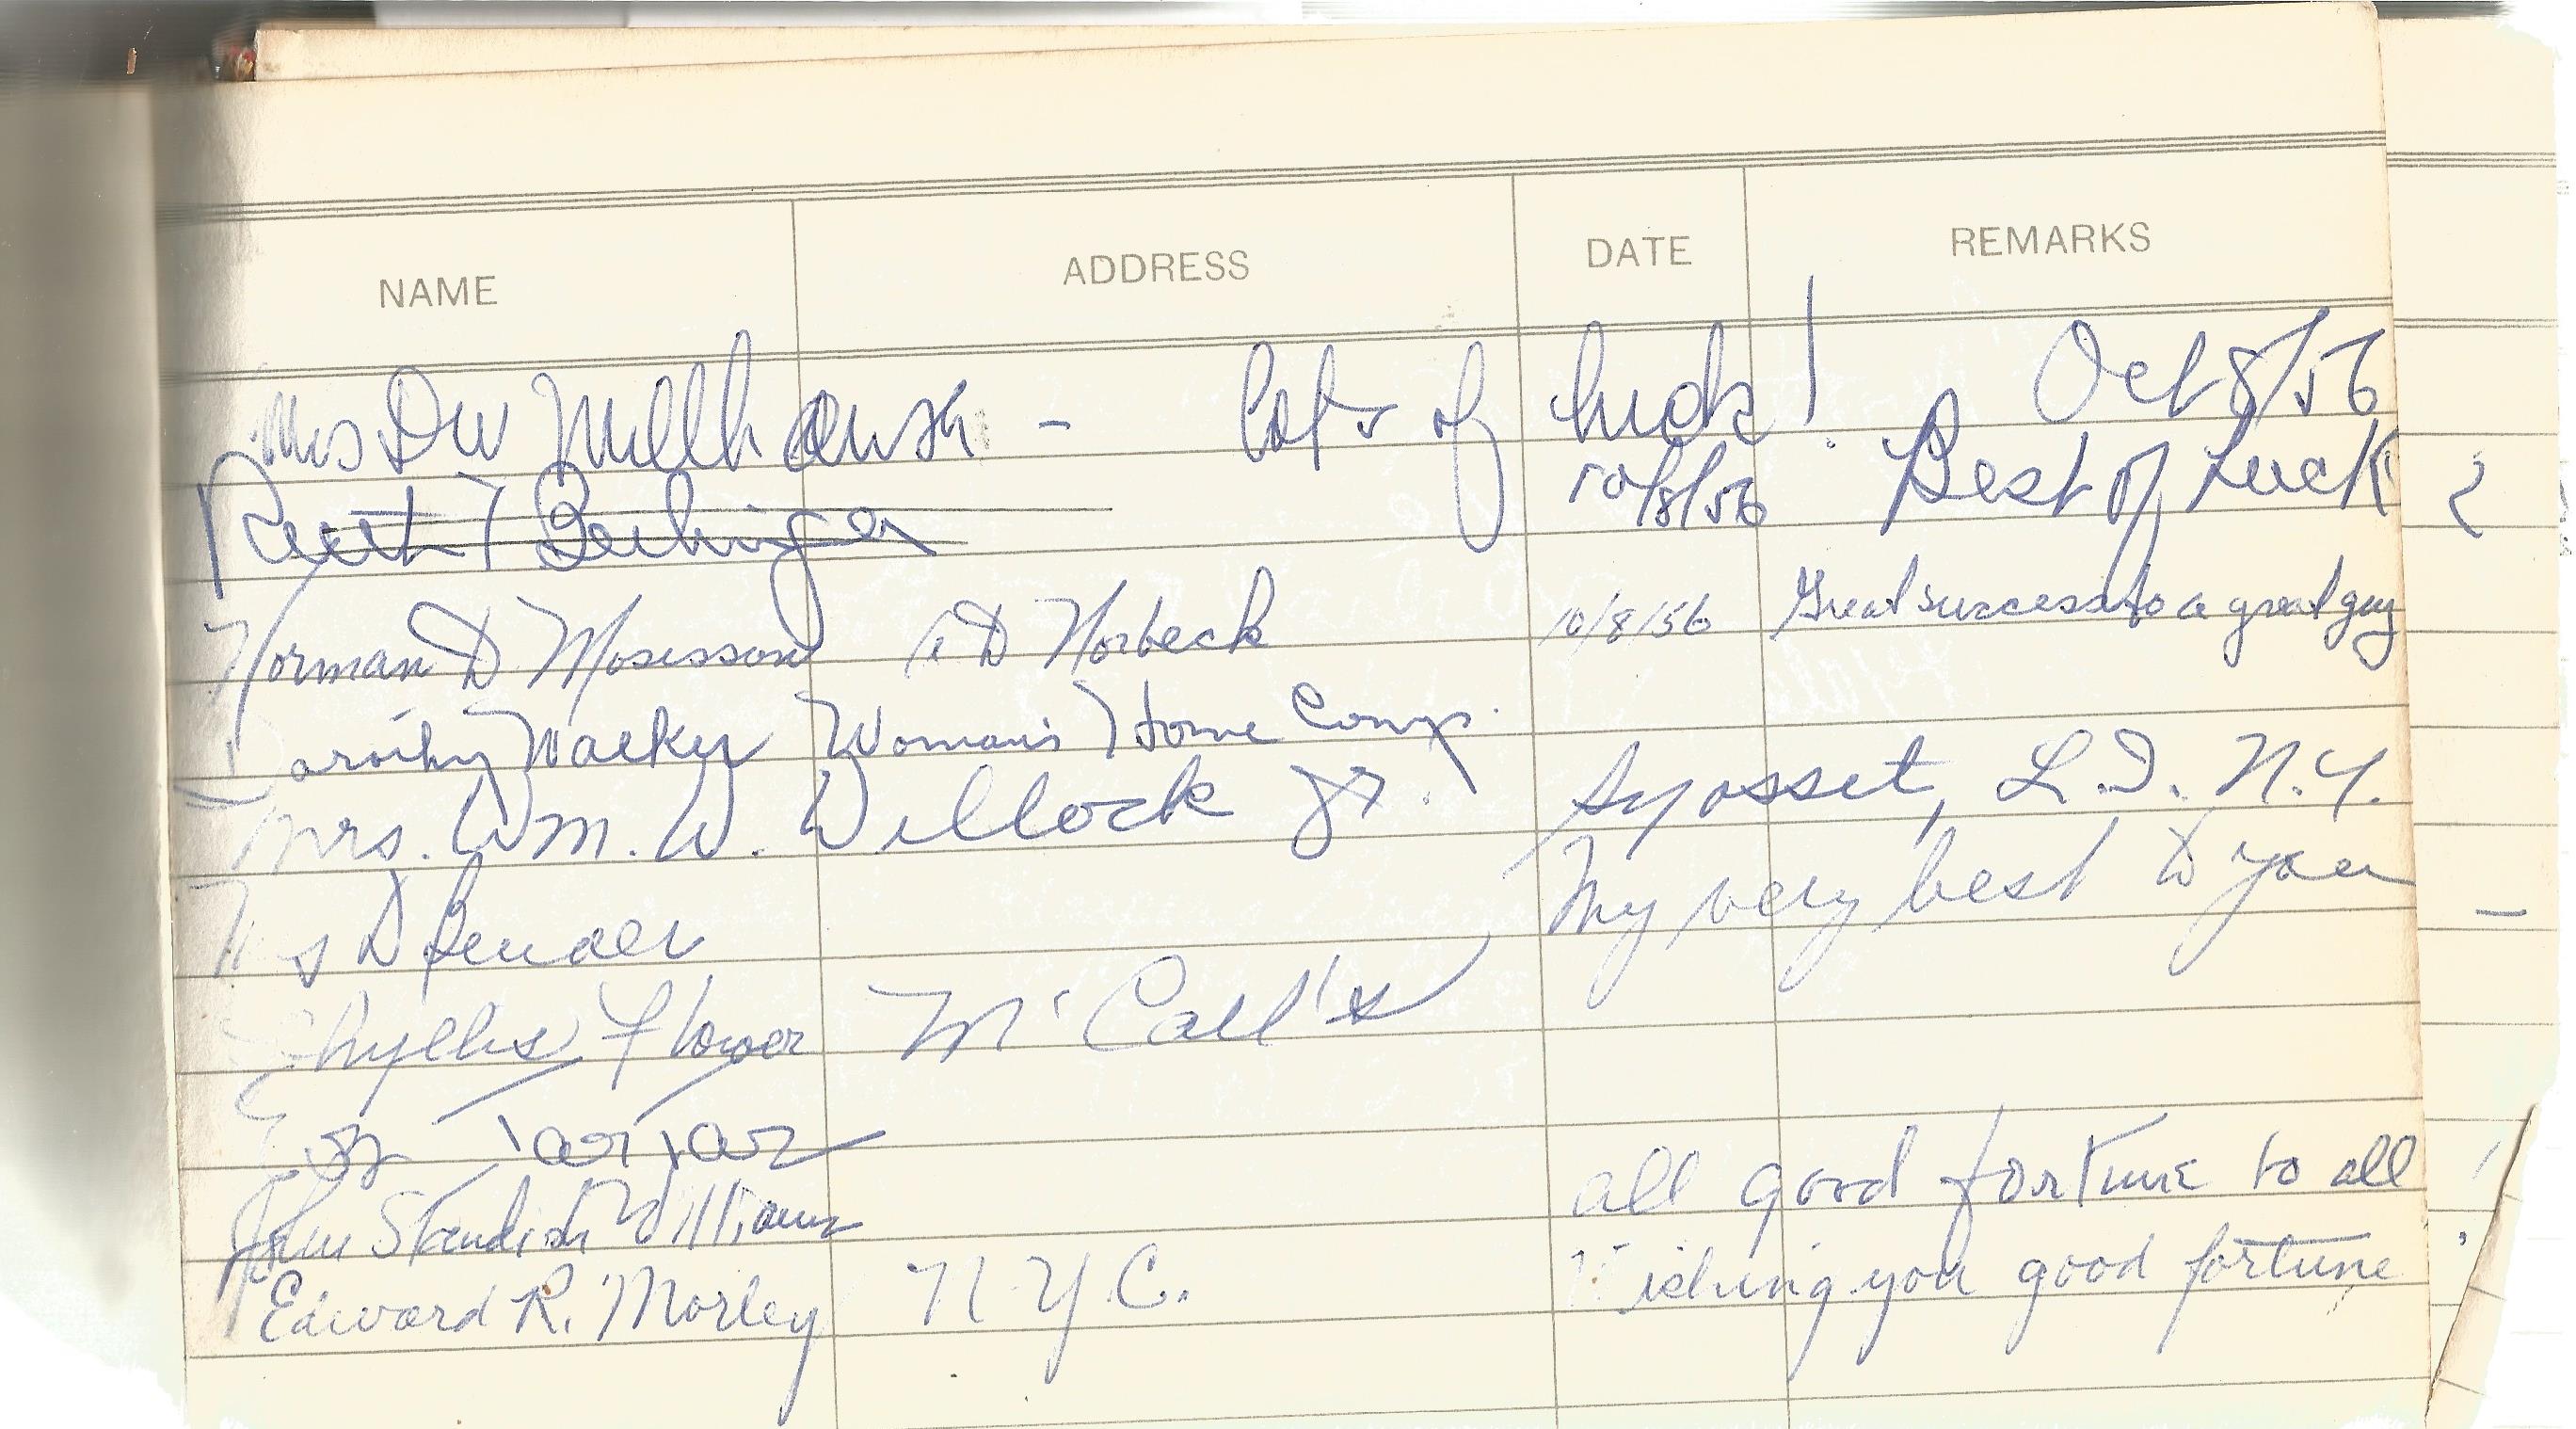 NAME ADDRESS DATE REMARKS
Mrs DW Millhauser - lots of luck! Oct 8/56
10/8/56 Best of Luck
Norman D Mosesson Norbeck 10/8/56 Great success to a great guy
Dorothy Walker Woman's Home Comp.
Mrs. Wm. W. Willock Jr. Syosset, L.I. N.Y.
My very best to you -
Phyllis Flower McCall's
John Standish Williams all good fortune to all !
Edward R. Morley N.Y.C. Wishing you good fortune